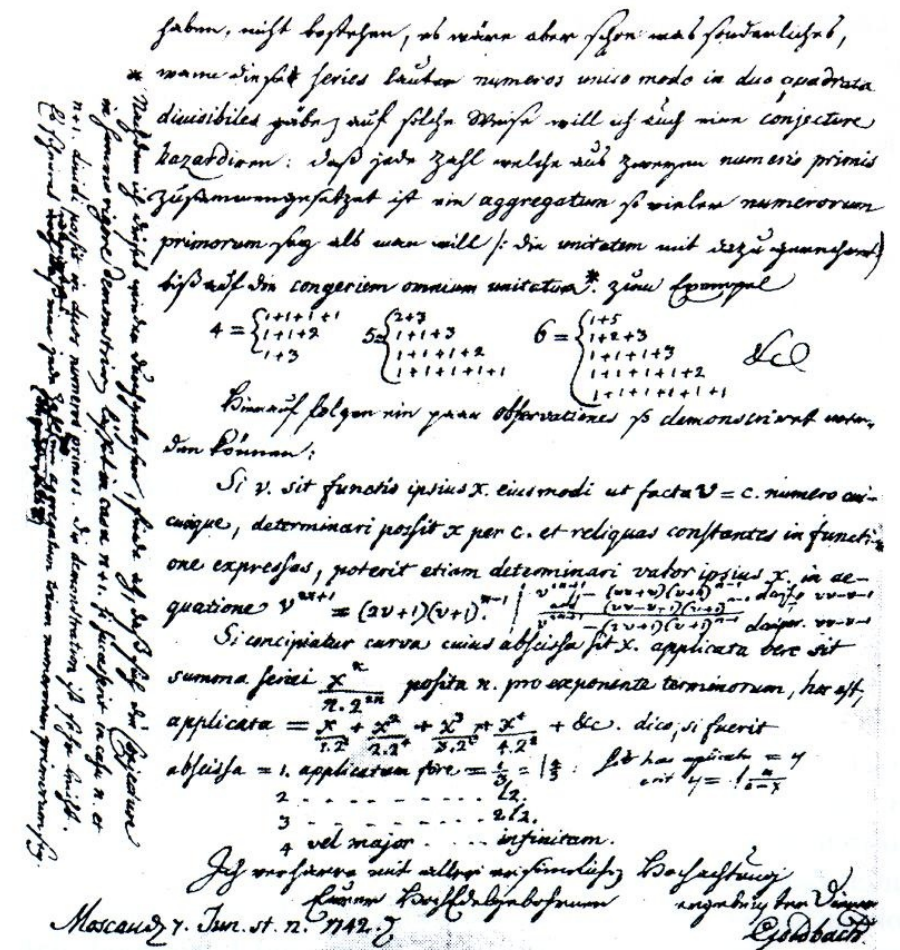 haben, nicht bestehen, es wäre aber schon was sonderliches,
wann diese series lauter numeros unico modo in duo quadrata
divisibiles gäbe auf solche Weise will ich auch eine conjecture
hazardiren: daß jede Zahl welche aus zweyen numeris primis
zusammengesetzet ist ein aggregatum so vieler numerorum
primorum sey als man will /: die unitatem mit dazu gerechnet
biß auf die congeriem omnium unitatum*. zum Exempel
4 = { 1+1+1+1
1+1+2
1+3
5 = { 2+3
1+1+3
1+1+1+2
1+1+1+1+1
6 = { 1+5
1+2+3
1+1+1+3
1+1+1+1+2
1+1+1+1+1+1
&c
Hierauf folgen ein paar observationes so demonstriret wer-
den können:
Si v. sit functio ipsius x. eiusmodi ut facta v = c. numero cui-
cunque, determinari possit x per c. et reliquas constantes in functi-
one expressas, poterit etiam determinari valor ipsius x. in ae-
quatione v^{2n+1} = (2v+1)(v+1)^{n-1}.
Si concipiatur curva cuius abscissa sit x. applicata vero sit
summa seriei x^n/n.2^{2n} posita n. pro exponente terminorum, hoc est,
applicata = x/1.2² + x²/2.2⁴ + x³/3.2⁶ + x⁴/4.2⁸ + &c. dico, si fuerit
abscissa = 1. applicatam fore =
2 . . . . . . . . . . l2.
3 . . . . . . . . . . 2l2.
4 vel major . . . . infinitam.
Ich verharre mit aller ersinnlichen Hochachtung
Eurer Hochedelgebohrnen
ergebenster Diener
Moscau d. 7. Jun. st. n. 1742.
Goldbach.
* Nachdem ich dieses wieder durchgelesen, finde ich, daß sich die conjecture
in summo rigore demonstriren lässet in casu n+1. si successerit in casu n. et
n+1. dividi possit in duos numeros primos. Die demonstration ist sehr leicht.
Es scheinet wenigstens, daß eine jede Zahl ein aggregatum trium numerorum primorum sey.